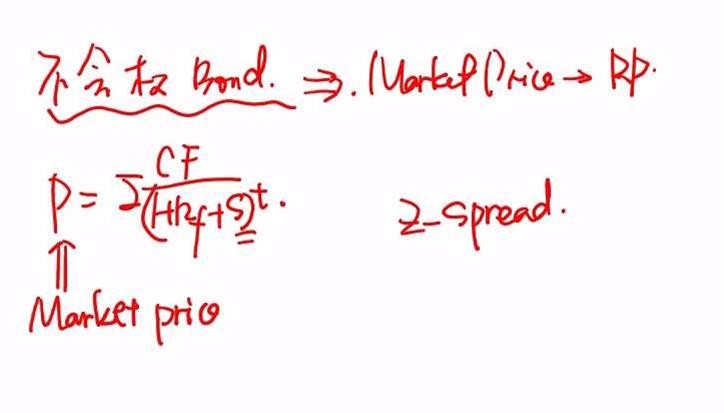 不含权 Bond. ⇒. Market Price → RP.
P = Σ CF/(1+Rf+S)^t.
Z-spread.
⇑
Market price